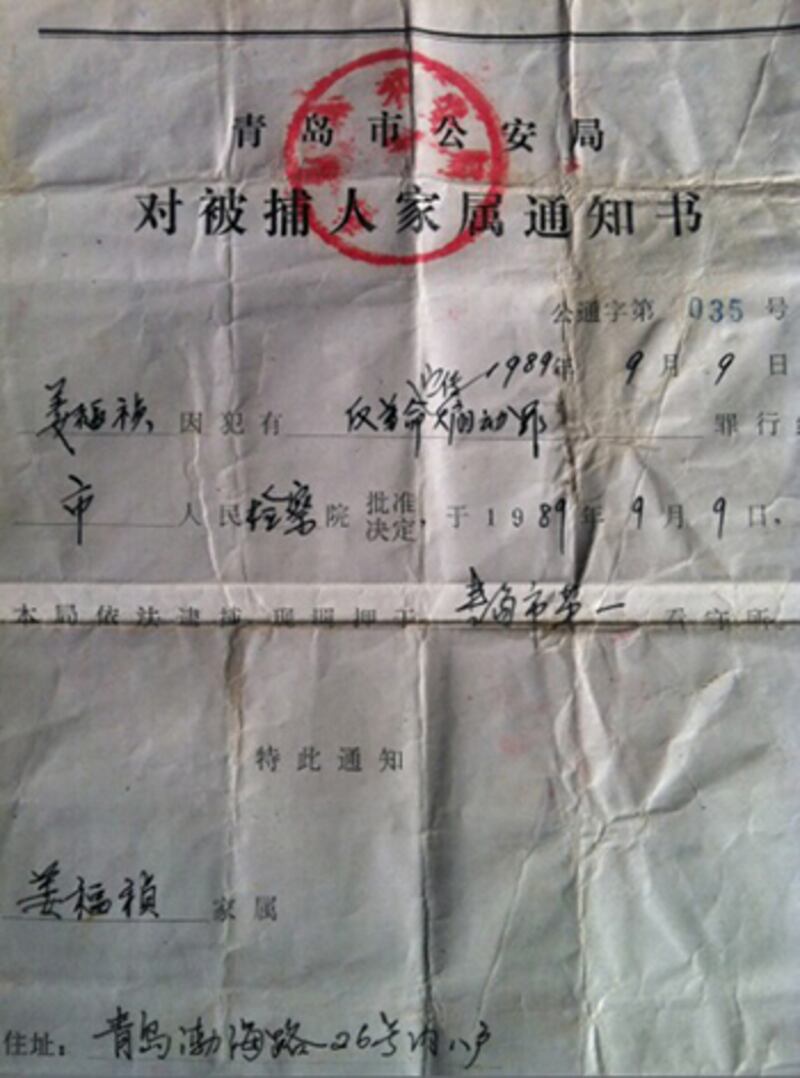 青岛市公安局
对被捕人家属通知书
公通字第 035 号
1989年 9 月 9 日
姜福祯 因犯有 反革命宣传煽动罪 罪行经
市 人民检察院 批准 决定, 于 1989 年 9 月 9 日,
本局依法逮捕, 现羁押于 青岛市第一 看守所。
特此通知
姜福祯 家属
住址: 青岛渤海路26号内八户